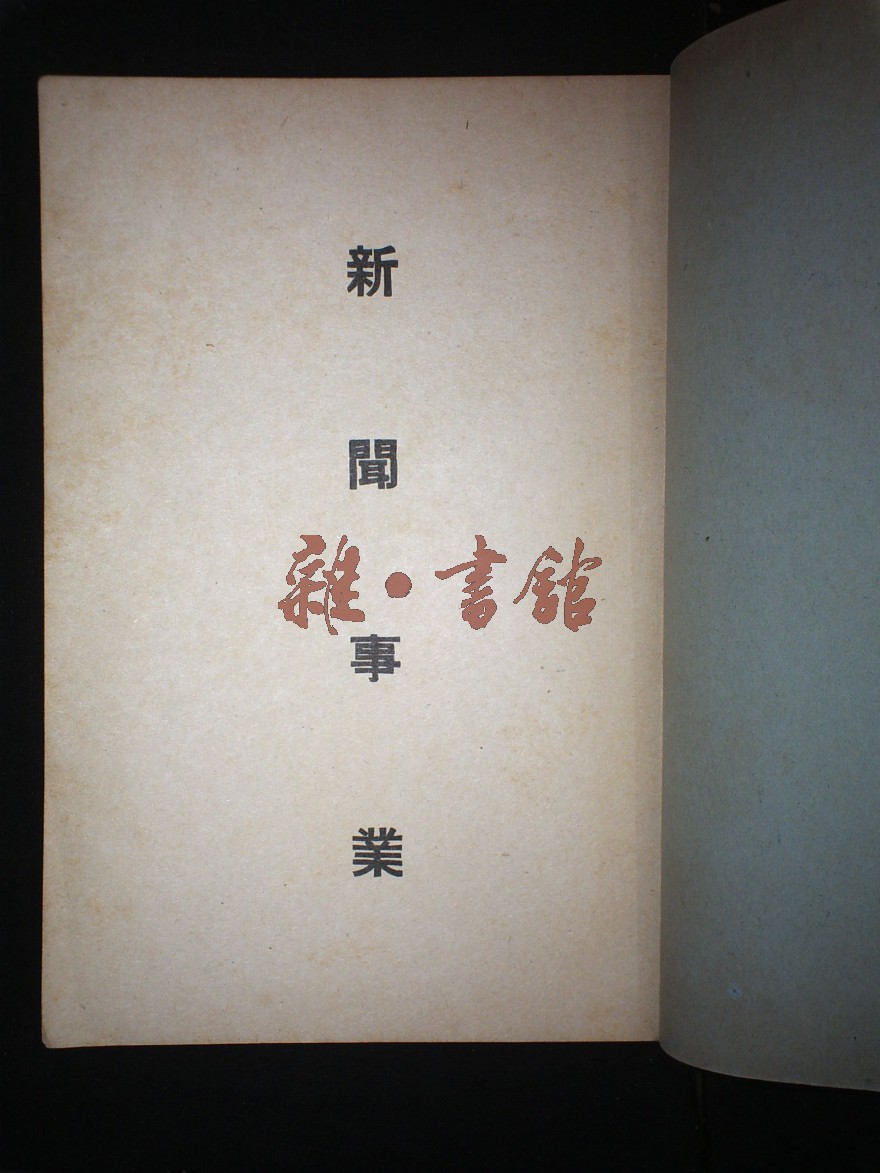 新聞事業
雜·書館